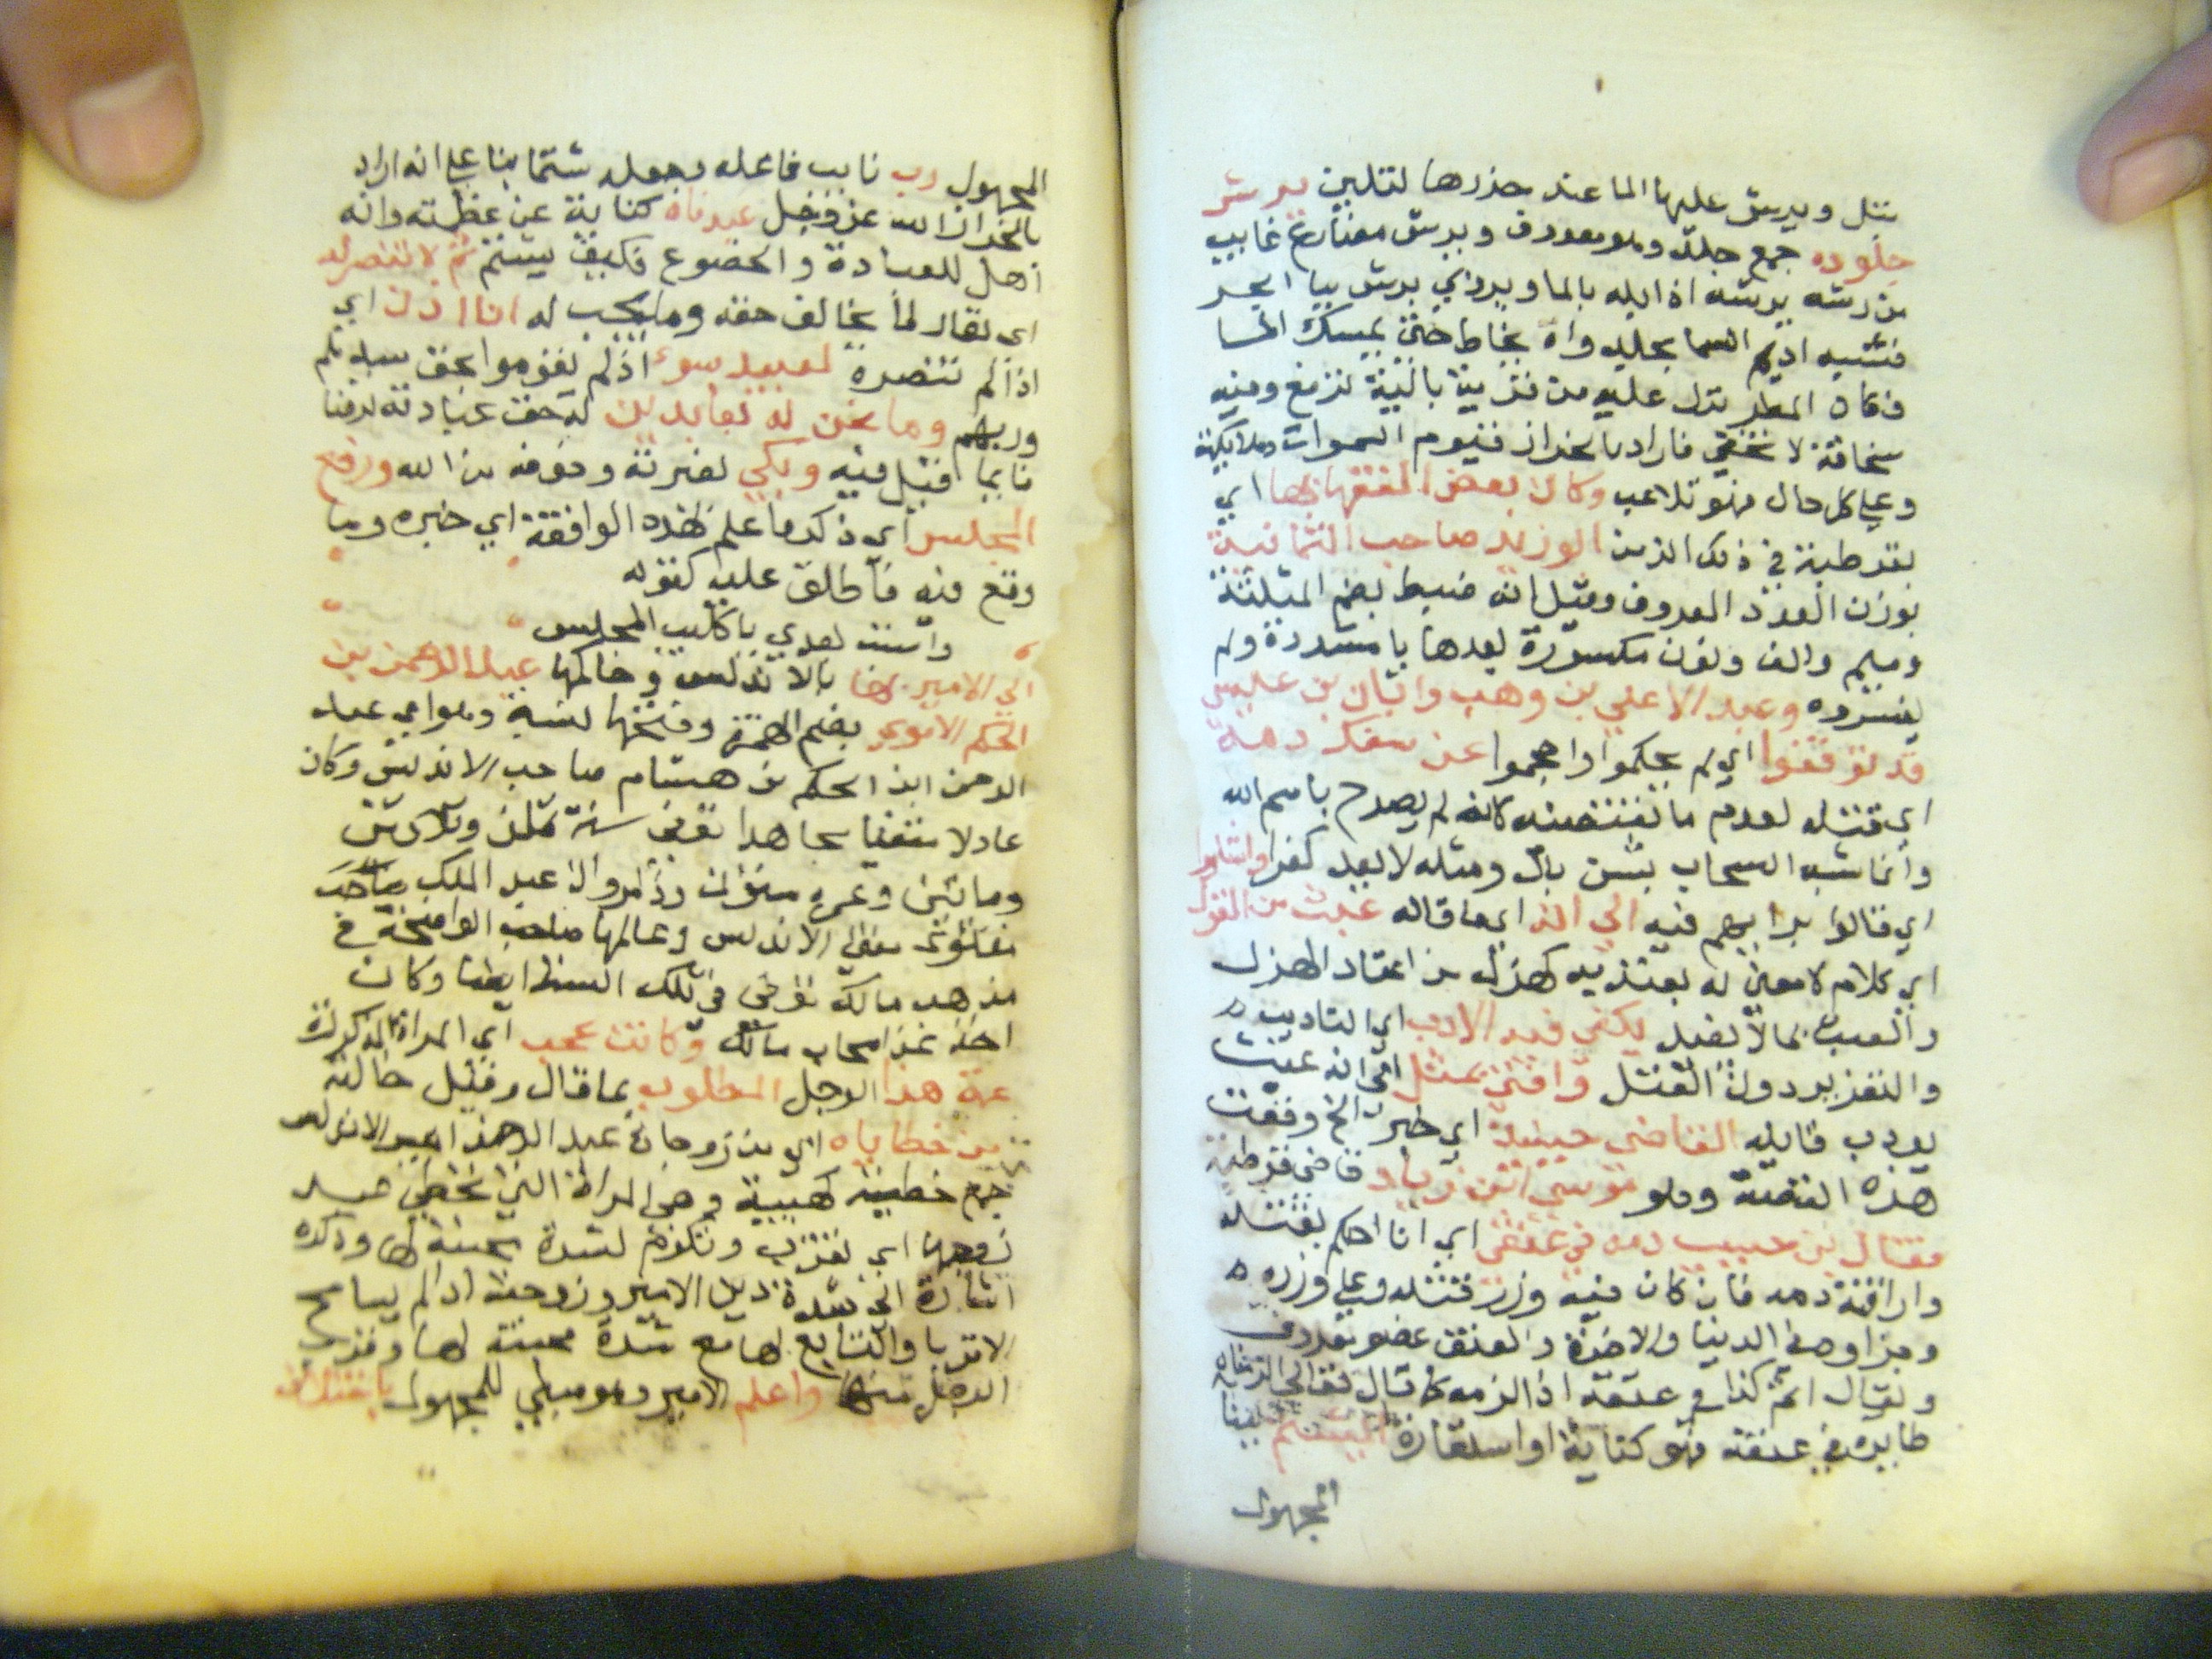 تبل ويرش عليها الما عند حذرها لتلين يرش
جلوده جمع جلد وهو معروف ويرش مضارع غايب
من رشه يرشه اذا بله بالما ويروي برش بيا الجر
فشبه اديم السما بجلد وانه يخاط حتى يمسك الما
فكان المطر نزل عليه من قربة بالية ترقع وفيه
سخافة لا تخفى فاراد بالخراز قيوم السموات وملايكته
وعلى كل حال فهو تلاعب وكان بعض الفقهاء بها اي
بقرطبة في ذلك الزمن ابو زيد صاحب الثمانية
بوزن العدد المعروف وقيل انه ضبط بضم المثلثة
وميم والف ونون مكسورة بعدها يا مشددة ولم
يفسروه وعبد الاعلى بن وهب وابان بن عيسى
قد توقفوا اي لم يحكموا واحجموا عن سفك دمه
اي قتله لعدم ما يقتضيه كانه لم يصرح باسم الله
وانما شبه السحاب بشن بال ومثله لا يعد كفرا واشاروا
اي قالوا برايهم فيه الى انه اي ما قاله عبث من القول
اي كلام لا معنى له يعتد به كهزل من اعتاد الهزل
والعبث بما لا يفيد يكفي فيه الادب اي التاديب
والتعزير دون القتل وافتى بمثله اي انه عبث
يودب قايله القاضي حينيذ اي حين اذ وقعت
هذه القصة وهو موسى ابن زياد قاضي قرطبة
فقال ابن حبيب دمه في عنقي اي انا احكم بقتله
واراقة دمه فان كان فيه وزر قتله وعلي وزره
وجزاوه في الدنيا والاخرة والعنق عضو معروف
ويقال اثم كذا في عنقه اذا لزمه كما قال تعالى الزمناه
طايره في عنقه فهو كناية او استعارة ايشتم بالبنا
المجهول
المجهول رب نايب فاعله وجعله شتما بنا على انه اراد
بالخراز الله عز وجل عبدناه كناية عن عظمته وانه
اهل للعبادة والخضوع فكيف يشتم ثم لا ننتصر له
اي نقار لما يخالف حقه وما يجب له انا اذن اي
اذا لم ننتصر له لعبيد سوء اذ لم يقوموا بحق سيدهم
وربهم وما نحن له بعابدين له حق عبادته لرضنا
بما قيل فيه وبكى لغيرته وخوفه من الله ورفع
المجلس اي ذكر ما علم لهذه الواقعة اي خبره وما
وقع فيه فاطلق عليه كقوله
واستب بعدك يا كليب المجلس
الى الامير بها بالاندلس وحاكمها عبد الرحمن بن
الحكم الاموي بضم الهمزة وفتحها نسبة وهو اي عبد
الرحمن ابن الحكم بن هشام صاحب الاندلس وكان
عادلا متقنا مجاهدا توفي سنة ثمان وثلاثين
ومائتين وعمره ستون وذكر وان عبد الملك صاحب
مفتي الاندلس وعالمها صاحب الواضحة في
مذهب مالك توفي في تلك السنة ايضا وكان
اخذ عن اصحاب مالك وكانت عجب اي المراة المذكورة
عمة هذا الرجل المطلوب بما قال وقيل خالته
من حظاياه اي من زوجات عبد الرحمن امير الاندلس
جمع حظية كهبية وهي المراة التي تحظى عند
زوجها اي تقرب وتكرم لشدة محبته لها وذكره
اشارة الى شدة دين الامير وزوجته اذ لم يسامح
الاقربا والتتابع لها مع شدة محبته لها وقرب
الرجل منها واعلم الامير وهو مبني للمجهول باختلاف